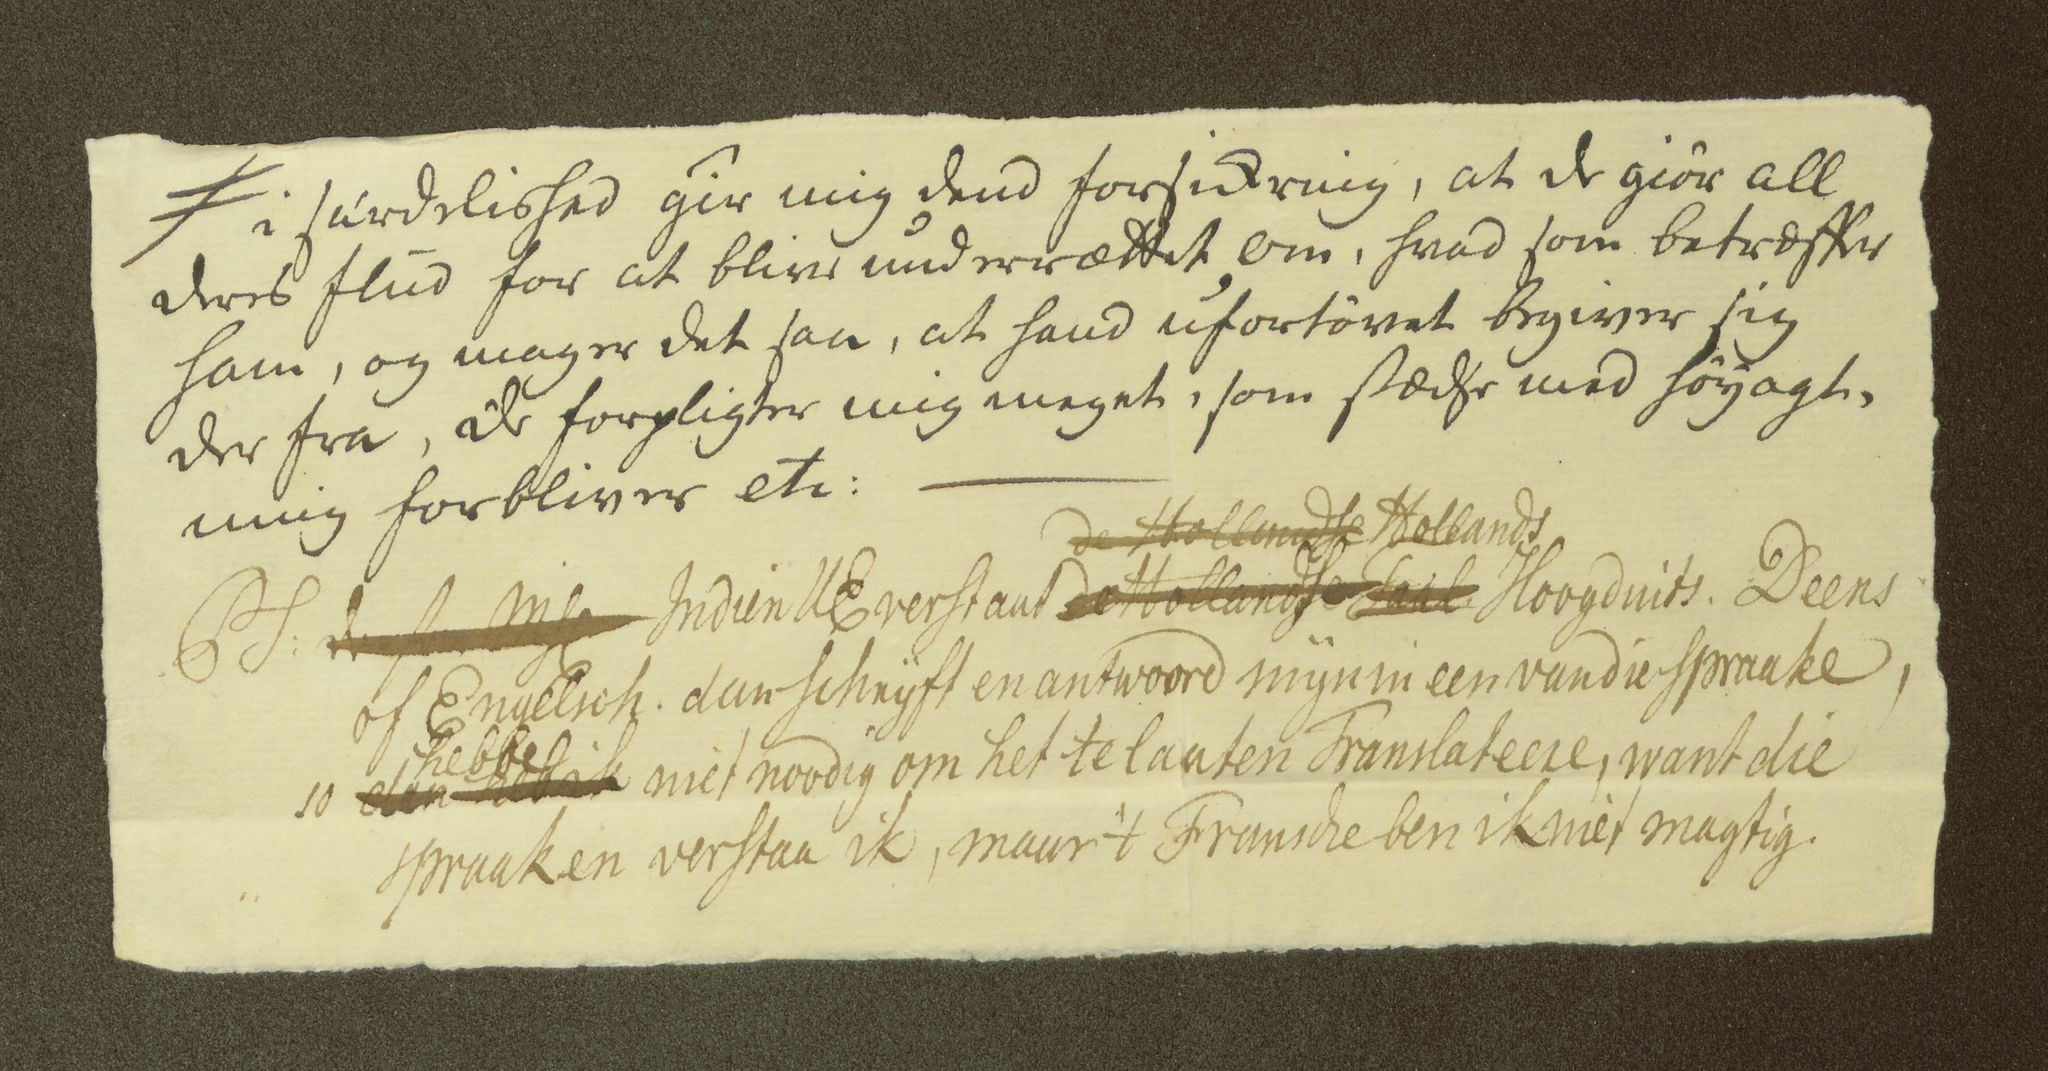 i særdelished gir mig dend forsickring, at de giör all
deres flüd for at blive underrættet om, hvad som betræffer
ham, og mager det saa, at hand ufortövet begiver sig
der fra, de forpligter mig meget, som stædse med höyagt,
ning forbliver etc:
de Hollandse Hollands
PS: Indien UE verstaat de Hollandse Taal Hoogduits. Deens
of Engelsch. dan schryft en antwoord myn in een van die spraake,
hebbe
so dan heb ik niet noodig om het te laaten Translateere, want die
spraaken verstaa ik, maar 't Fransche ben ik niet magtig.